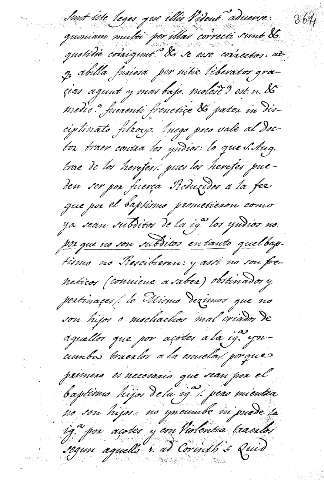 864
sunt iste leges que illis videnť adversa:
quoniam multi por illas correcti sunt &
quotidie corrigunť & se esse correctos. at
q̃ ab illa furiosa pernicie liberatos gra-
cias agunt y mas bajo. molestº est n. &
medicº furenti frenetico & pater in dis-
ciplinato filio y luego poco vale al Doc-
tor traer contra los yndios: lo que S. Aug.
trae de los herejes: pues los herejes pue-
den ser por fuerça Reduzidos a la fee
que por el baptismo prometieron como
ya sean subditos de la igª los yndios no
por que no son subditos en tanto quel bap-
tismo no Rescibieren: y assi no son fre-
neticos (conviene a saber) obstinados y
pertinaçes. lo Mismo dezimos que no
son hijos o mochachos mal criados de
aquellos que por açotes a la igª yn-
cumba traerlos a la escuela: porque
primero es necesario que sean por el
baptismo hijos de la igª: pero mientra
no son hijos. no yncumbe ni puede la
igª por açotes y con Violentia traerlos
segun aquello 1. ad Corinth 5 Quid